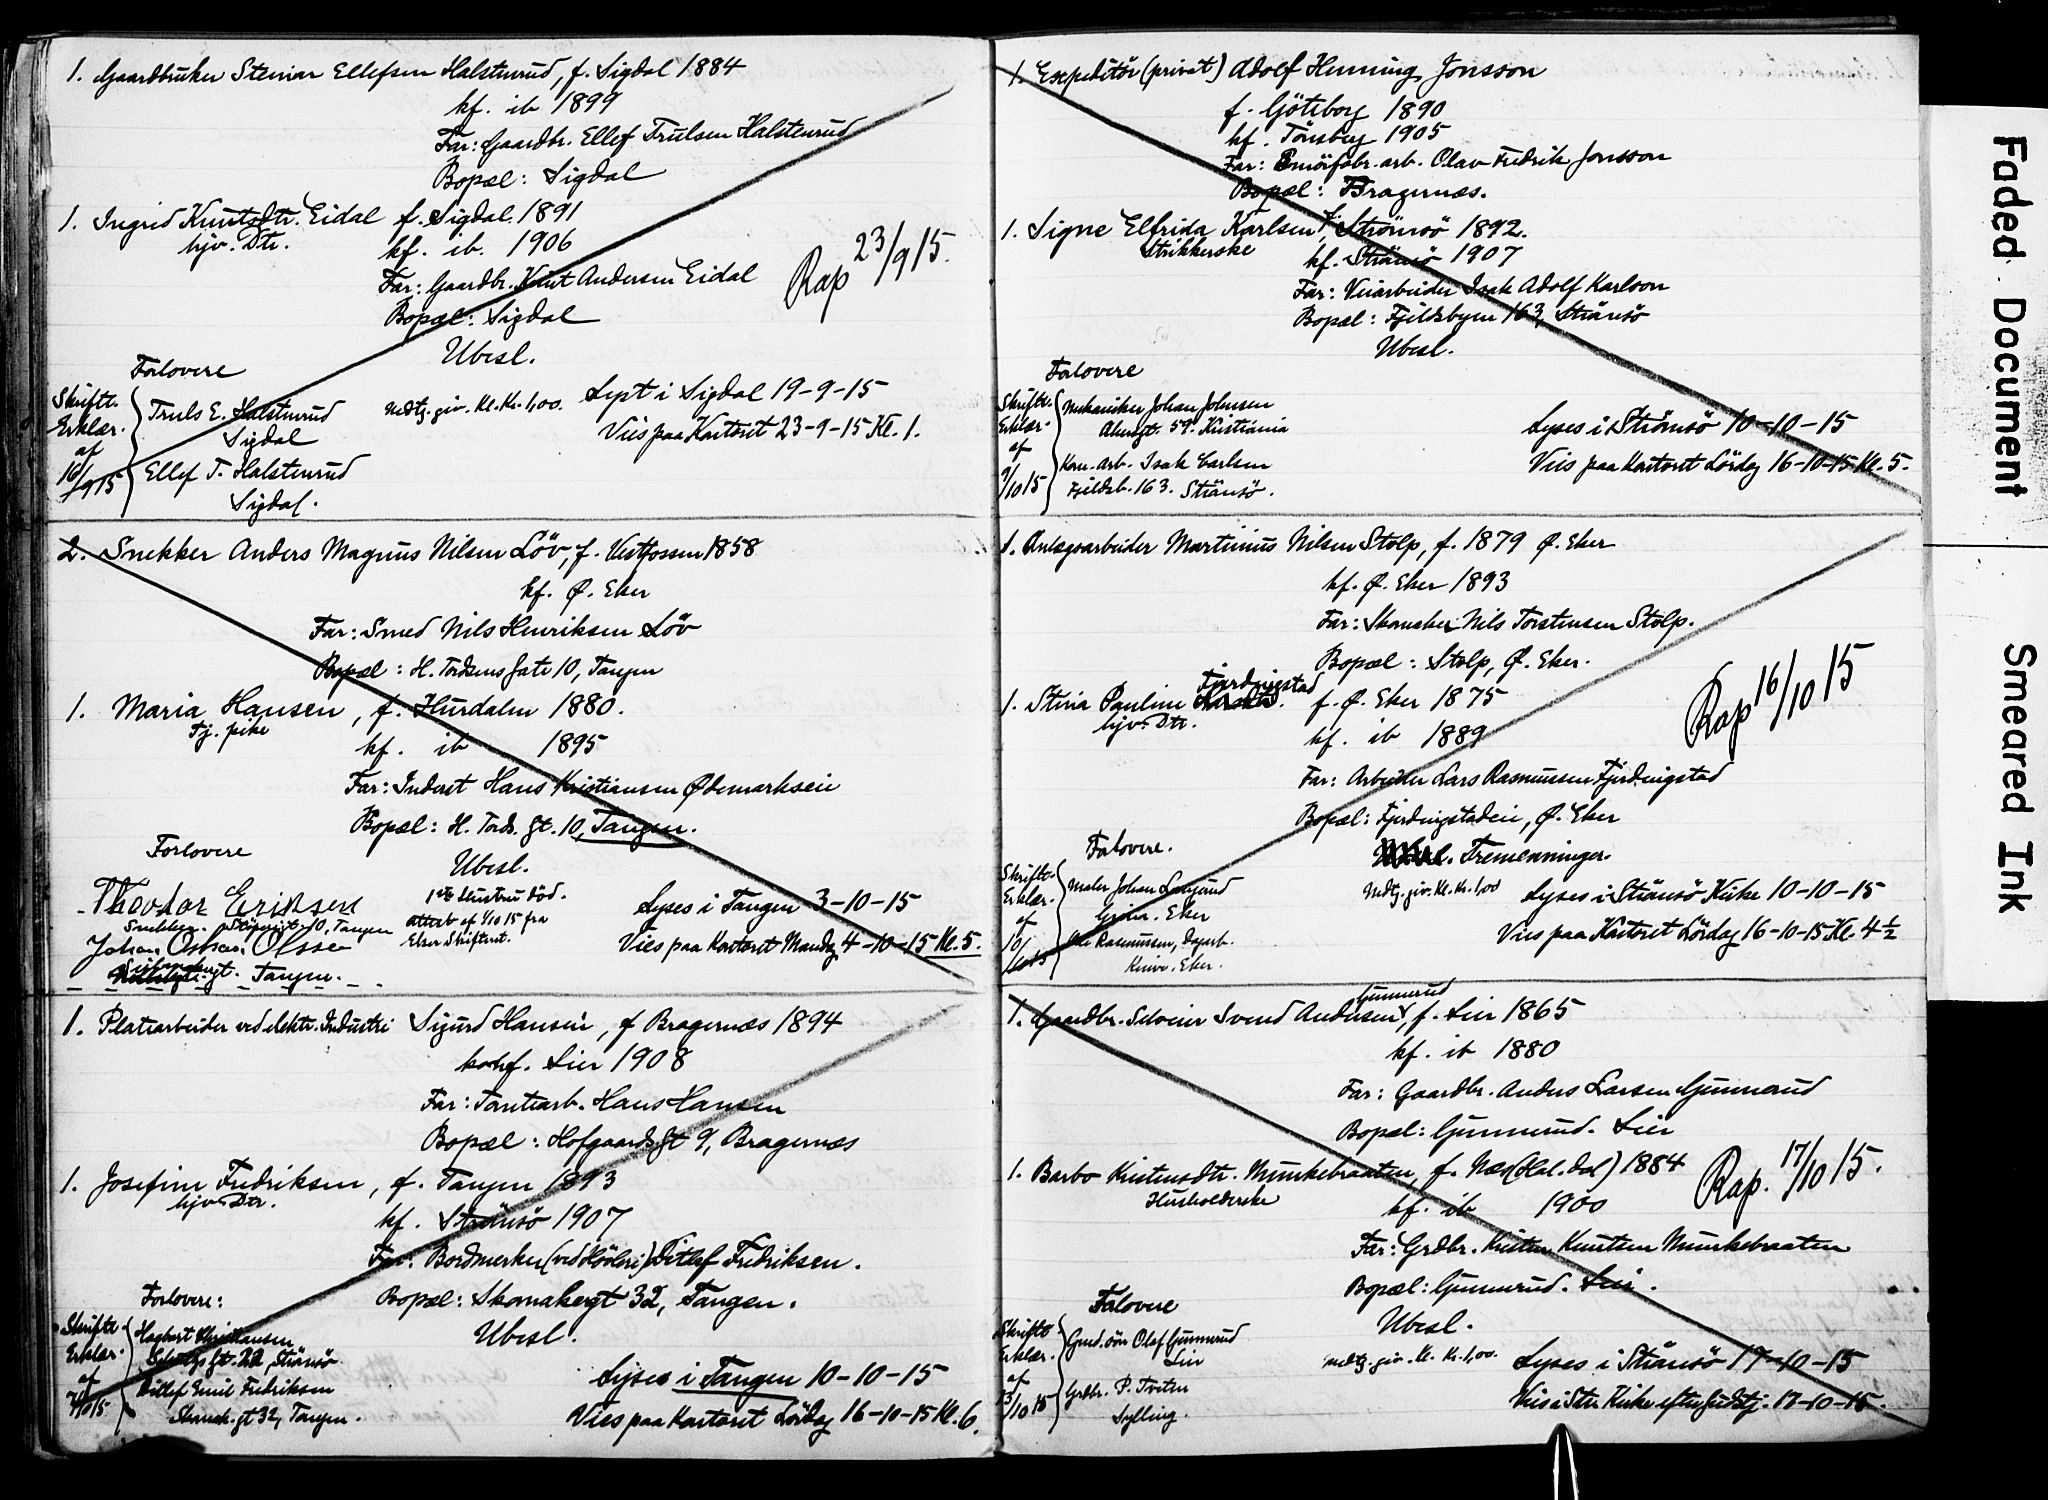 1. Gaardbruker Steinar Ellefsen Halstenrud, f. Sigdal 1884
kf. ib 1899
Far: Gaardbr. Ellef Trulsen Halstenrud
Bopæl: Sigdal
1. Ingrid Knutsdtr. Eidal f. Sigdal 1891
hjv. Dtr.
kf. ib. 1906
Far: Gaardbr. Knut Andersen Eidal
Bopæl: Sigdal
Rap 23/9 15.
Ubesl.
Forlovere
Skriftl. Erklær. af 16/9 15
Truls E. Halstenrud
Sigdal
Ellef T. Halstenrud
Sigdal.
Mdtg. giv. Kl. Kr. 1,00.
Lyst i Sigdal 19-9-15
Vies paa Kontoret 23-9-15 Kl. 1.
2. Snekker Anders Magnus Nilsen Löv, f. Vestfossen 1858
kf. Ø. Eker
Far: Smed Nils Henriksen Löv
Bopæl: H. Tordsens gate 10, Tangen
1. Maria Hansen, f. Hurdalen 1880.
Tj. pike
kf. ib 1895
Far: Inderst Hans Kristiansen Ødemarkseie
Bopæl: H. Tords. gt. 10, Tangen.
Ubesl.
Forlovere
Theodor Eriksen
Snekker. 10, Tangen
Johan Oskar Olsse
gt. Tangen.
1ste Hustru död.
attest af 1/10 15 fra
Eker Skifteret.
Lyses i Tangen 3-10-15
Vies paa Kontoret Mandag 4-10-15 Kl. 5.
1. Platearbeider ved elektr. Industri Sigurd Hansen, f Bragernæs 1894
konf. Lier 1908
Far: Tomtearb. Hans Hansen
Bopæl: Hofgaards gt 9, Bragernæs
1. Josefine Fredriksen, f. Tangen 1893
hjv. Dtr.
kf. Strömsö 1907
Far: Bordmerker (ved Hövleri) Ditlef Fredriksen.
Bopæl: Skomakergt 32, Tangen.
Ubesl.
Forlovere:
Skriftl. Erklær. af 7/10 15
Hagbart Kristiansen
Schultzs gt. 22, Strömsö
Ditlef Emil Fredriksen
Skomak. gt 32, Tangen.
Lyses i Tangen 10-10-15
Vies paa Kontoret Lördag 16-10-15 Kl. 6.
1. Expeditör (privat) Adolf Henning Jonsson
f. Göteborg 1890
kf. Tönsberg 1905
Far: Smörfabr. arb. Olav Fredrik Jonsson
Bopæl: Bragernæs.
1. Signe Elfrida Karlsen, f. Strömsö 1892.
Strikkerske
kf. Strömsö 1907
Far: Veiarbeider Isak Adolf Karlson
Bopæl: Fjeldsbyen 163, Strömsö
Ubesl.
Forlovere
Skriftl. Erklær. af 9/10 15
Mekaniker Johan Johnsen
Akersgt. 59. Kristiania
Kom. arb. Isak Carlsen
Fjeldsb. 163. Strömsö.
Lyses i Strömsö 10-10-15
Vies paa Kontoret Lördag 16-10-15 Kl. 5.
1. Anlægsarbeider Martinius Nilsen Stolp, f. 1879 Ø. Eker
kf. Ø. Eker 1893
Far: Skomaker Nils Torstensen Stolp.
Bopæl: Stolp, Ø. Eker.
Fjerdingstad
1. Stina Pauline f. Ø. Eker 1875
hjv. Dtr.
kf. ib 1889
Far: Arbeider Lars Rasmussen Fjerdingstad
Bopæl: Fjerdingstadeie, Ø. Eker
Rap 16/10 15
Tremenninger.
Forlovere.
Skriftl. Erklær. af 10/10 15
Maler Johan
Eker
Ole Rasmussen, Dagarb.
Knive. Eker.
Mdtg. giv. Kl. Kr. 1,00
Lyses i Strömsö Kirke 10-10-15
Vies paa Kontoret Lördag 16-10-15 Kl. 4½
Gunnerud
1. Gaardbr. Selveier Svend Andersen, f. Lier 1865
kf. ib 1880
Far: Gaardbr. Anders Larsen Gunnerud
Bopæl: Gunnerud. Lier
1. Barbo Kristensdtr. Munkebraaten, f. Næs (Hal.dal) 1884
Husholderske
kf. ib 1900
Far: Grdbr. Kristen Knutsen Munkebraaten
Bopæl: Gunnerud. Lier.
Rap. 17/10 15.
Ubesl.
Forlovere
Skriftl. Erklær. af 13/10 15
Grd. sön Olaf Gunnerud
Lier
Grdbr. P. Tveten
Sylling.
Mdtg. giv. Kl. Kr. 1,00.
Lyses i Strömsö 17-10-15
Vies i Strs Kirke efter Gudstj. 17-10-15.
Faded Document
Smeared Ink